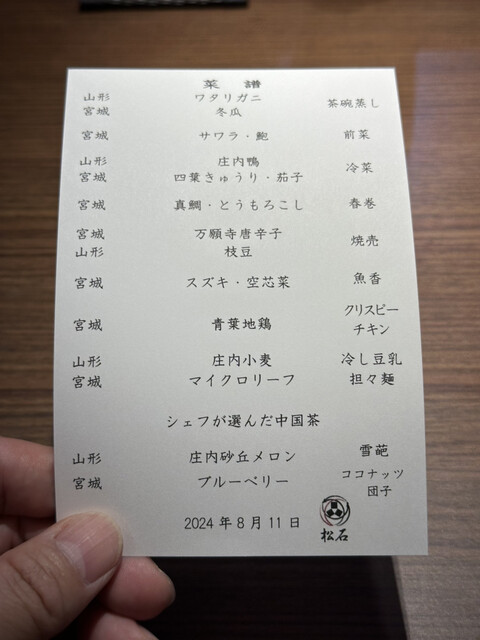 菜譜
山形 ワタリガニ 茶碗蒸し
宮城 冬瓜
宮城 サワラ・鮑 前菜
山形 庄内鴨 冷菜
宮城 四葉きゅうり・茄子
宮城 真鯛・とうもろこし 春巻
宮城 万願寺唐辛子 焼売
山形 枝豆
宮城 スズキ・空芯菜 魚香
宮城 青葉地鶏 クリスピー
チキン
山形 庄内小麦 冷し豆乳
宮城 マイクロリーフ 担々麺
シェフが選んだ中国茶
山形 庄内砂丘メロン 雪葩
宮城 ブルーベリー ココナッツ
団子
2024年8月11日 松石